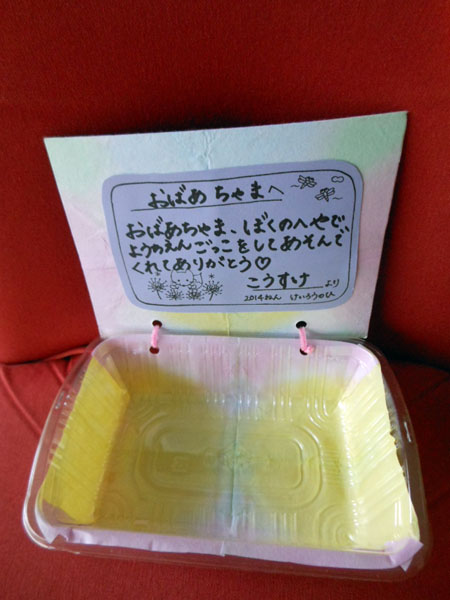 おばあちゃまへ
おばあちゃま、ぼくのへやで、
ようちえんごっこをしてあそんで
くれてありがとう♡
こうすけ より
2014ねん けいろうのひ